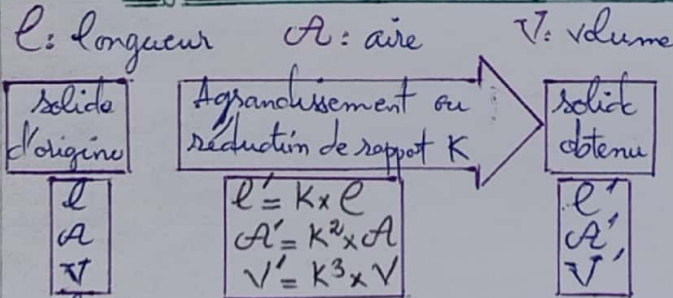 ℓ: longueur    A: aire    V: volume
solide d'origine
Agrandissement ou
réduction de rapport K
solide obtenu
ℓ
A
V
ℓ' = K × ℓ
A' = K² × A
V' = K³ × V
ℓ'
A'
V'